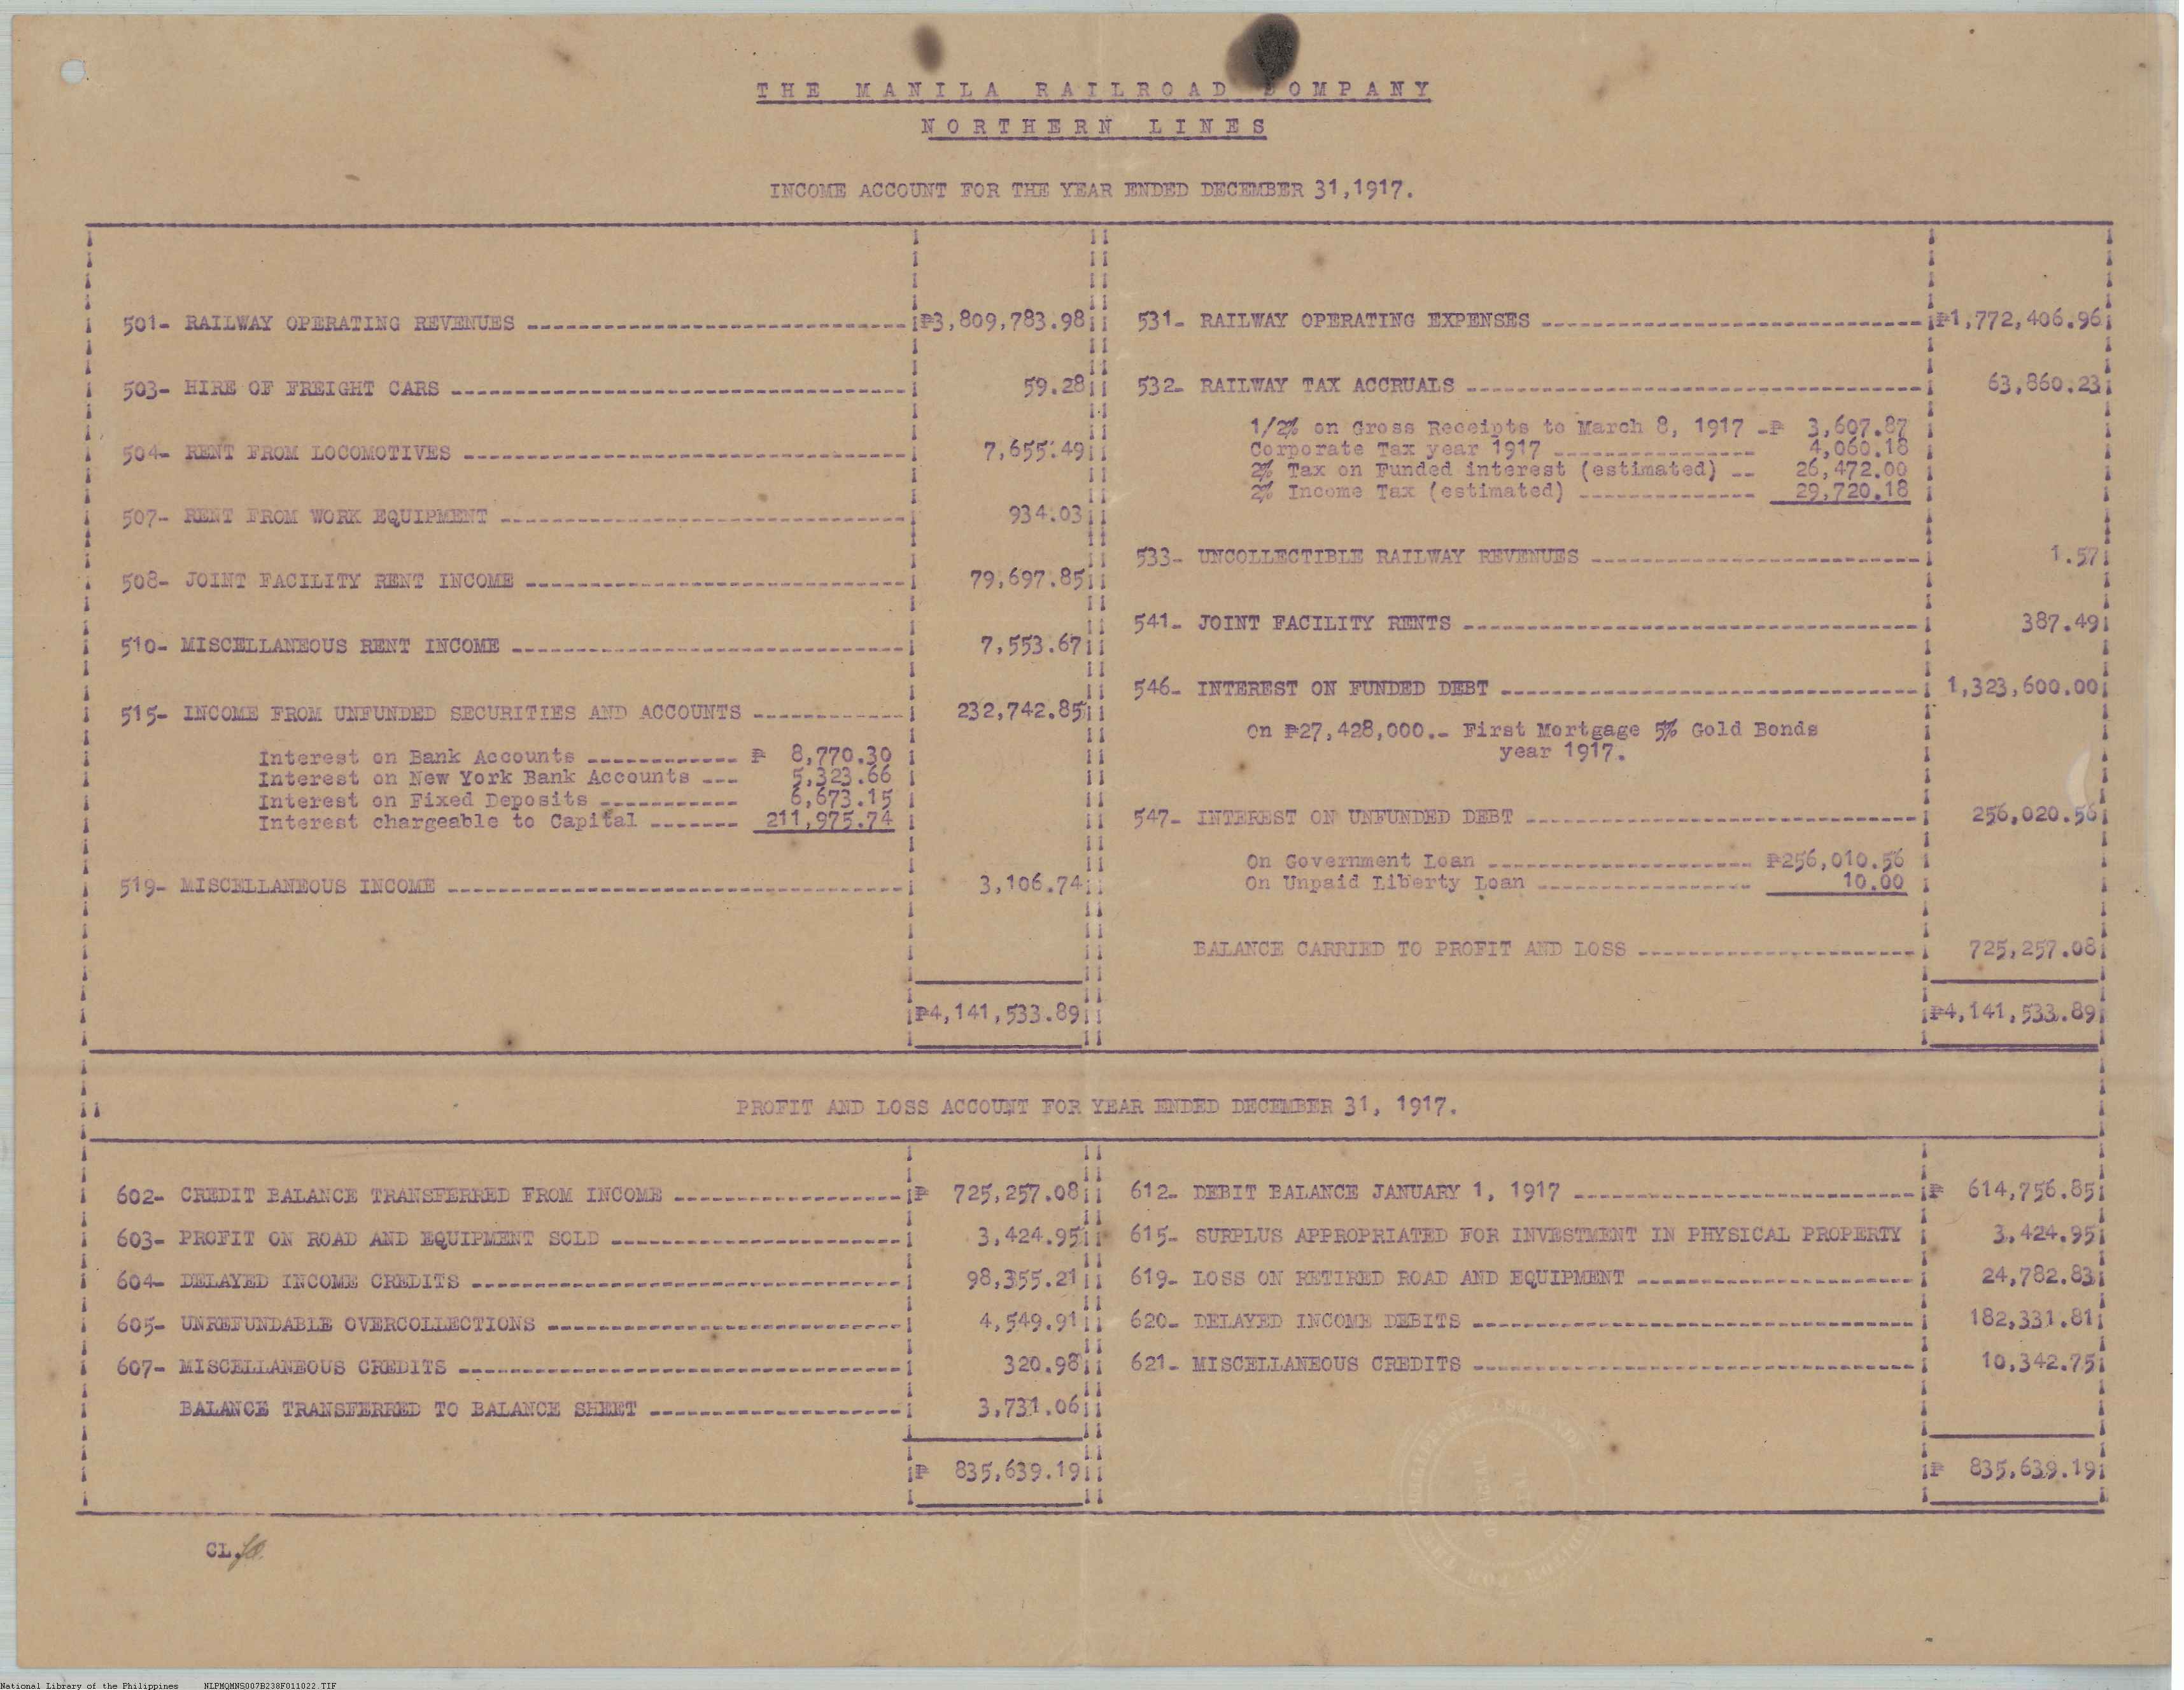 THE MANILA RAILROAD COMPANY
NORTHERN LINES
INCOME ACCOUNT FOR THE YEAR ENDED DECEMBER 31,1917.
501- RAILWAY OPERATING REVENUES ₱3,809,783.98
503- HIRE OF FREIGHT CARS 59.28
504- RENT FROM LOCOMOTIVES 7,655.49
507- RENT FROM WORK EQUIPMENT 934.03
508- JOINT FACILITY RENT INCOME 79,697.85
510- MISCELLANEOUS RENT INCOME 7,553.67
515- INCOME FROM UNFUNDED SECURITIES AND ACCOUNTS 232,742.85
Interest on Bank Accounts ₱ 8,770.30
Interest on New York Bank Accounts 5,323.66
Interest on Fixed Deposits 6,673.15
Interest chargeable to Capital 211,975.74
519- MISCELLANEOUS INCOME 3,106.74
₱4,141,533.89
531- RAILWAY OPERATING EXPENSES ₱1,772,406.96
532- RAILWAY TAX ACCRUALS 63,860.23
1/2% on Gross Receipts to March 8, 1917 ₱ 3,607.87
Corporate Tax year 1917 4,060.18
2% Tax on Funded interest (estimated) 26,472.00
2% Income Tax (estimated) 29,720.18
533- UNCOLLECTIBLE RAILWAY REVENUES 1.57
541- JOINT FACILITY RENTS 387.49
546- INTEREST ON FUNDED DEBT 1,323,600.00
On ₱27,428,000.- First Mortgage 5% Gold Bonds
year 1917.
547- INTEREST ON UNFUNDED DEBT 256,020.56
On Government Loan ₱256,010.56
On Unpaid Liberty Loan 10.00
BALANCE CARRIED TO PROFIT AND LOSS 725,257.08
₱4,141,533.89
PROFIT AND LOSS ACCOUNT FOR YEAR ENDED DECEMBER 31, 1917.
602- CREDIT BALANCE TRANSFERRED FROM INCOME ₱ 725,257.08
603- PROFIT ON ROAD AND EQUIPMENT SOLD 3,424.95
604- DELAYED INCOME CREDITS 98,355.21
605- UNREFUNDABLE OVERCOLLECTIONS 4,549.91
607- MISCELLANEOUS CREDITS 320.98
BALANCE TRANSFERRED TO BALANCE SHEET 3,731.06
₱ 835,639.19
612- DEBIT BALANCE JANUARY 1, 1917 ₱ 614,756.85
615- SURPLUS APPROPRIATED FOR INVESTMENT IN PHYSICAL PROPERTY 3,424.95
619- LOSS ON RETIRED ROAD AND EQUIPMENT 24,782.83
620- DELAYED INCOME DEBITS 182,331.81
621- MISCELLANEOUS CREDITS 10,342.75
₱ 835,639.19
CL.
National Library of the Philippines NLPMQMNS007B238F011022.TIF